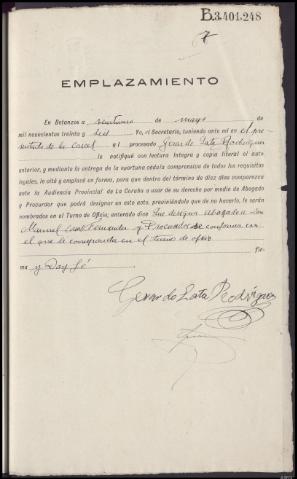 B.3.401.248
7
EMPLAZAMIENTO
En Betanzos a veintiuno de mayo de
mil novecientos treinta y seis Yo, el Secretario, teniendo ante mí en el
de la Carcel al procesado Gerardo Lata Rodríguez
le notifiqué con lectura íntegra y copia literal el auto
anterior, y mediante la entrega de la oportuna cédula comprensiva de todos los requisitos
legales, le cité y emplacé en forma, para que dentro del término de diez días comparezca
ante la Audiencia Provincial de La Coruña a usar de su derecho por medio de Abogado
y Procurador que podrá designar en este acto, previniéndole que de no hacerlo, le serán
nombrados en el Turno de Oficio; enterado dice que designa Abogado a Don
Manuel y Procurador se conforma con
el que le corresponda en el turno de oficio
Fir-
ma y Doy fé
Gerardo Lata Rodríguez